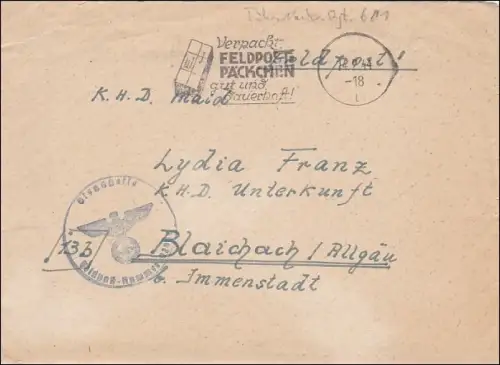 Verpackt
FELDPOST
PÄCKCHEN
gut und
dauerhaft!
Feldpost!
-18
K.H.D. Maid
Lydia Franz
K.H.D. Unterkunft
13b
Blaichach / Allgäu
b. Immenstadt
Dienststelle
Feldpost-Nummer